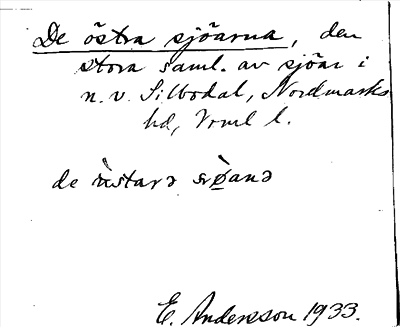 De östra sjöarna, den
stora saml. av sjöar i
n. v. Silbodal, Nordmarks
hd, Vrml l.
de
E. Andersson 1933.